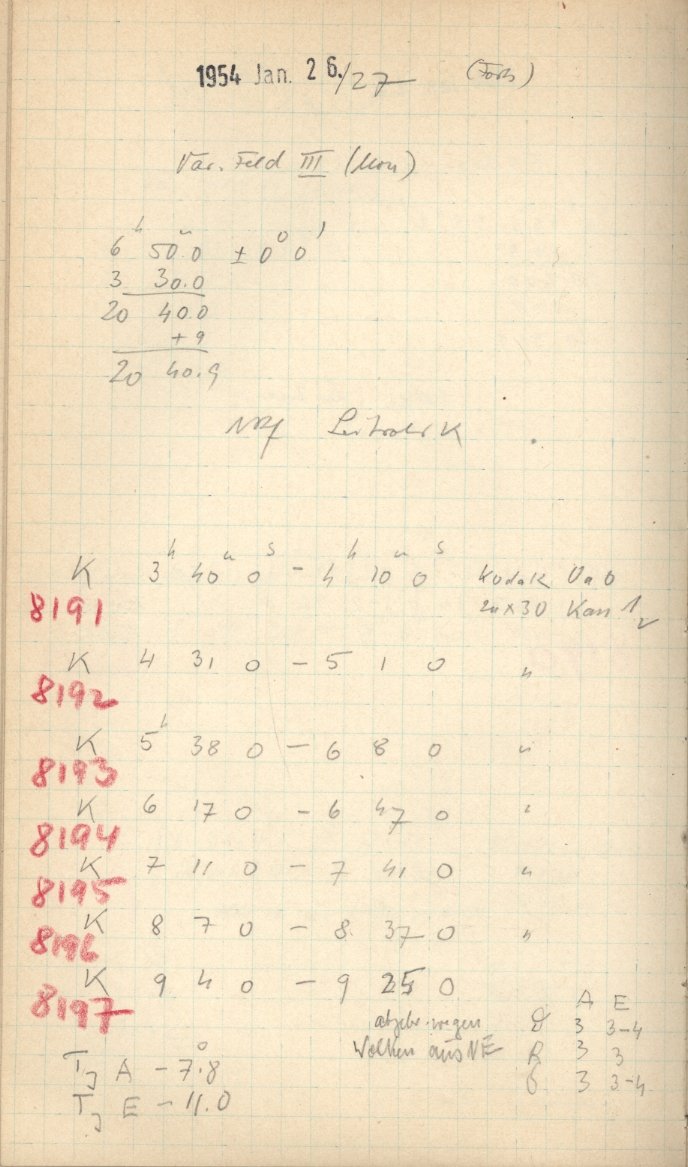 1954 Jan. 26./27 (Forts)
Var. Feld III (Mon)
6ʰ 50ᵐ.0 ± 0° 0'
3 30.0
20 40.0
+ 9
20 40.9
K 3ʰ 40ᵐ 0ˢ - 4ʰ 10ᵐ 0ˢ Kodak 0a0
8191
K 4 31 0 - 5 1 0 "
8192
K 5ʰ 38 0 - 6 8 0 "
8193
K 6 17 0 - 6 47 0 "
8194
K 7 11 0 - 7 41 0 "
8195
K 8 7 0 - 8 37 0 "
8196
K 9 4 0 - 9 25 0
8197
A E
abgebr. wegen 3 3-4
Wolken aus NE R 3 3
3 3-4
TJ A - 7°.8
TJ E - 11.0